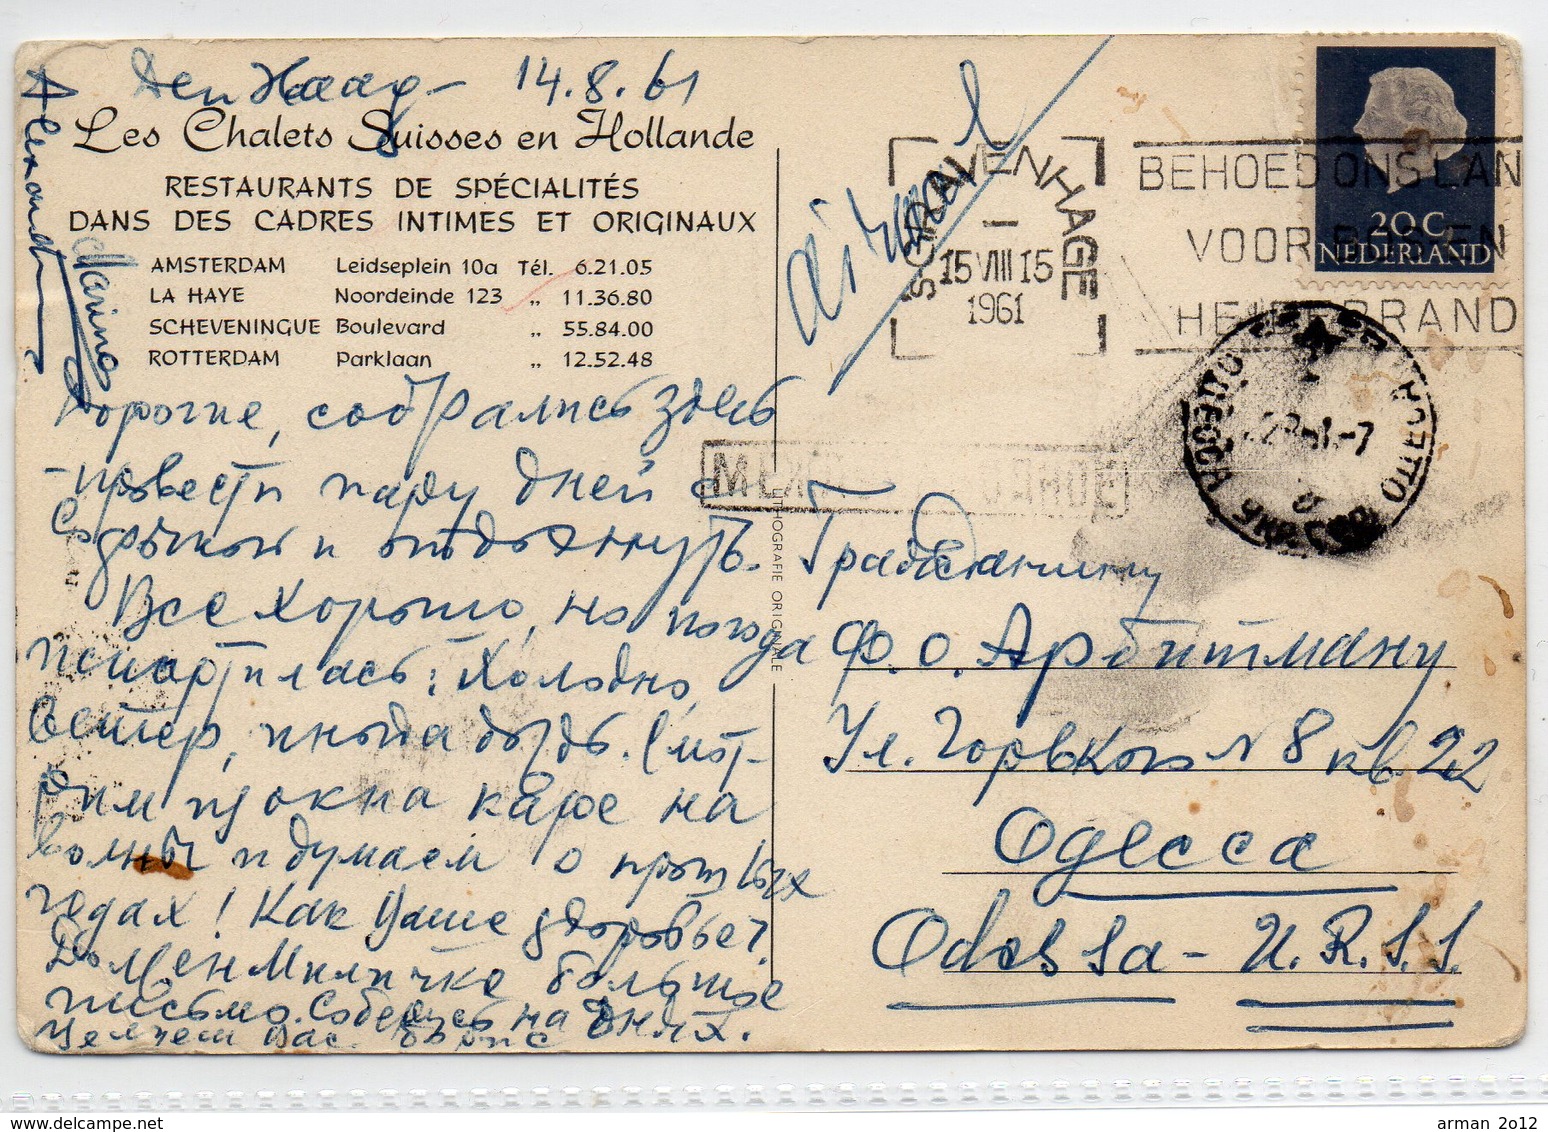 Ден Хааг - 14.8.61
Les Chalets Suisses en Hollande
RESTAURANTS DE SPÉCIALITÉS
DANS DES CADRES INTIMES ET ORIGINAUX
AMSTERDAM Leidseplein 10a Tél. 6.21.05
LA HAYE Noordeinde 123 „ 11.36.80
SCHEVENINGUE Boulevard „ 55.84.00
ROTTERDAM Parklaan „ 12.52.48
Дорогие, собрались здесь
провести пару дней с
и отдохнуть.
Все хорошо, но погода
испортилась: холодно,
ветер, иногда дождь. Сидим
из окна кафе на
волны и думаем о прошлых
годах! Как Ваше здоровье?
Миличке большое
письмо. на днях.
Целуем Вас.
Alexander
Marina
LITHOGRAFIE ORIGINALE
airmail
S-GRAVENHAGE
15 VIII 15
1961
BEHOED ONS LAN
VOOR BOS EN
HEIDEBRAND
20 C
NEDERLAND
Гражданину
Ф. О. Арбитману
Ул. Горького N 8 кв. 22
Одесса
Odessa - U.R.S.S.
arman 2012